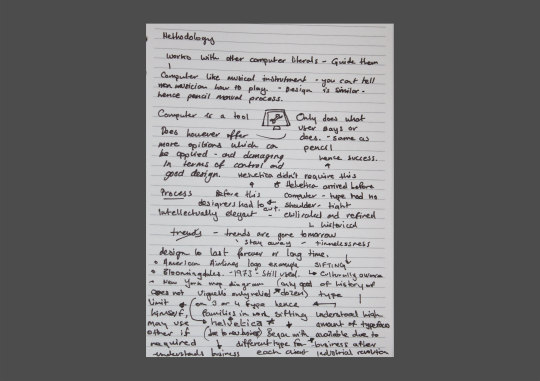 Methodology
works with other computer literals - Guide them
Computer like musical instrument - you cant tell
non musician how to play - Design is similar -
hence pencil manual process.
Computer is a tool Only does what
user says or
Does however offer does. - same as
more opitions which can pencil
be applied - and damaging hence success.
in terms of control and
good design. Helvetica didn't require this
& Helvetica arrived before
Process Before this computer - type had no
designers had to cut. shoulder - tight
Intellectually elegant - civilized and refined
historical
trends - trends are gone tomorrow
stay away - timelessness
design to last forever or long time.
American Airlines logo example SIFTING
Bloomingdales - 1973 - still used. Culturally aware
New York map diagram (only good of history of
does not Vignelli only relied dozen) type
limit on 3 or 4 type hence
himself, families in work sifting understood high
may use Helvetica amount of typefaces
other if Began with available due to
required different type for business after
understands business each client industrial revolution